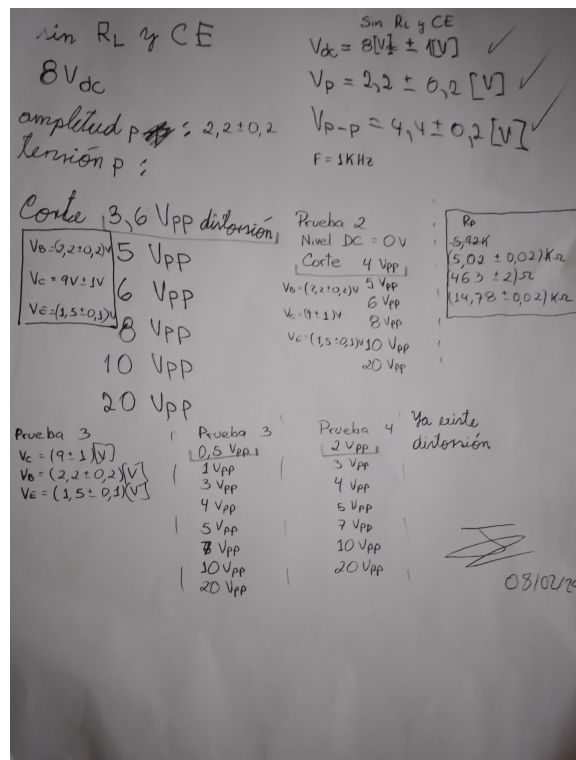 sin RL y CE
8Vdc
amplitud p : 2,2±0,2
tensión p :
Sin RL y CE
Vdc = 8[V] ± 1[V]
Vp = 2,2 ± 0,2 [V]
Vp-p = 4,4 ± 0,2 [V]
F = 1KHz
Corte 3,6 Vpp distorsión
VB=(2,2±0,2)V
VC = 9V±1V
VE=(1,5±0,1)V
5 Vpp
6 Vpp
8 Vpp
10 Vpp
20 Vpp
Prueba 2
Nivel DC = 0V
Corte 4 Vpp
VB=(2,2±0,2)V
VC=(9±1)V
VE=(1,5±0,1)V
5 Vpp
6 Vpp
8 Vpp
10 Vpp
20 Vpp
5,92K
(5,02 ± 0,02)KΩ
(463 ± 2)Ω
(14,78 ± 0,02)KΩ
Prueba 3
VC = (9 ± 1)[V]
VB = (2,2 ± 0,2)[V]
VE = (1,5 ± 0,1)[V]
Prueba 3
0,5 Vpp
1 Vpp
3 Vpp
4 Vpp
5 Vpp
7 Vpp
10 Vpp
20 Vpp
Prueba 4
2 Vpp
3 Vpp
4 Vpp
5 Vpp
7 Vpp
10 Vpp
20 Vpp
Ya existe
distorsión